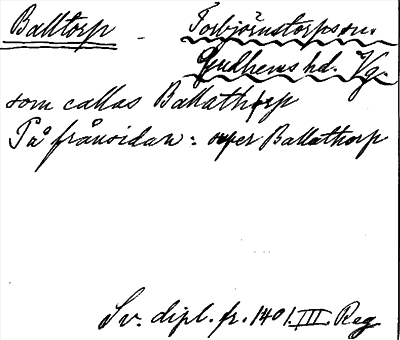 Balltorp - Torbjörnstorps sn.
Gudhems hd. Vg.
som callas Ballathorp
På frånsidan: super Ballathorp
Sv. dipl. fr. 1401. III. Reg